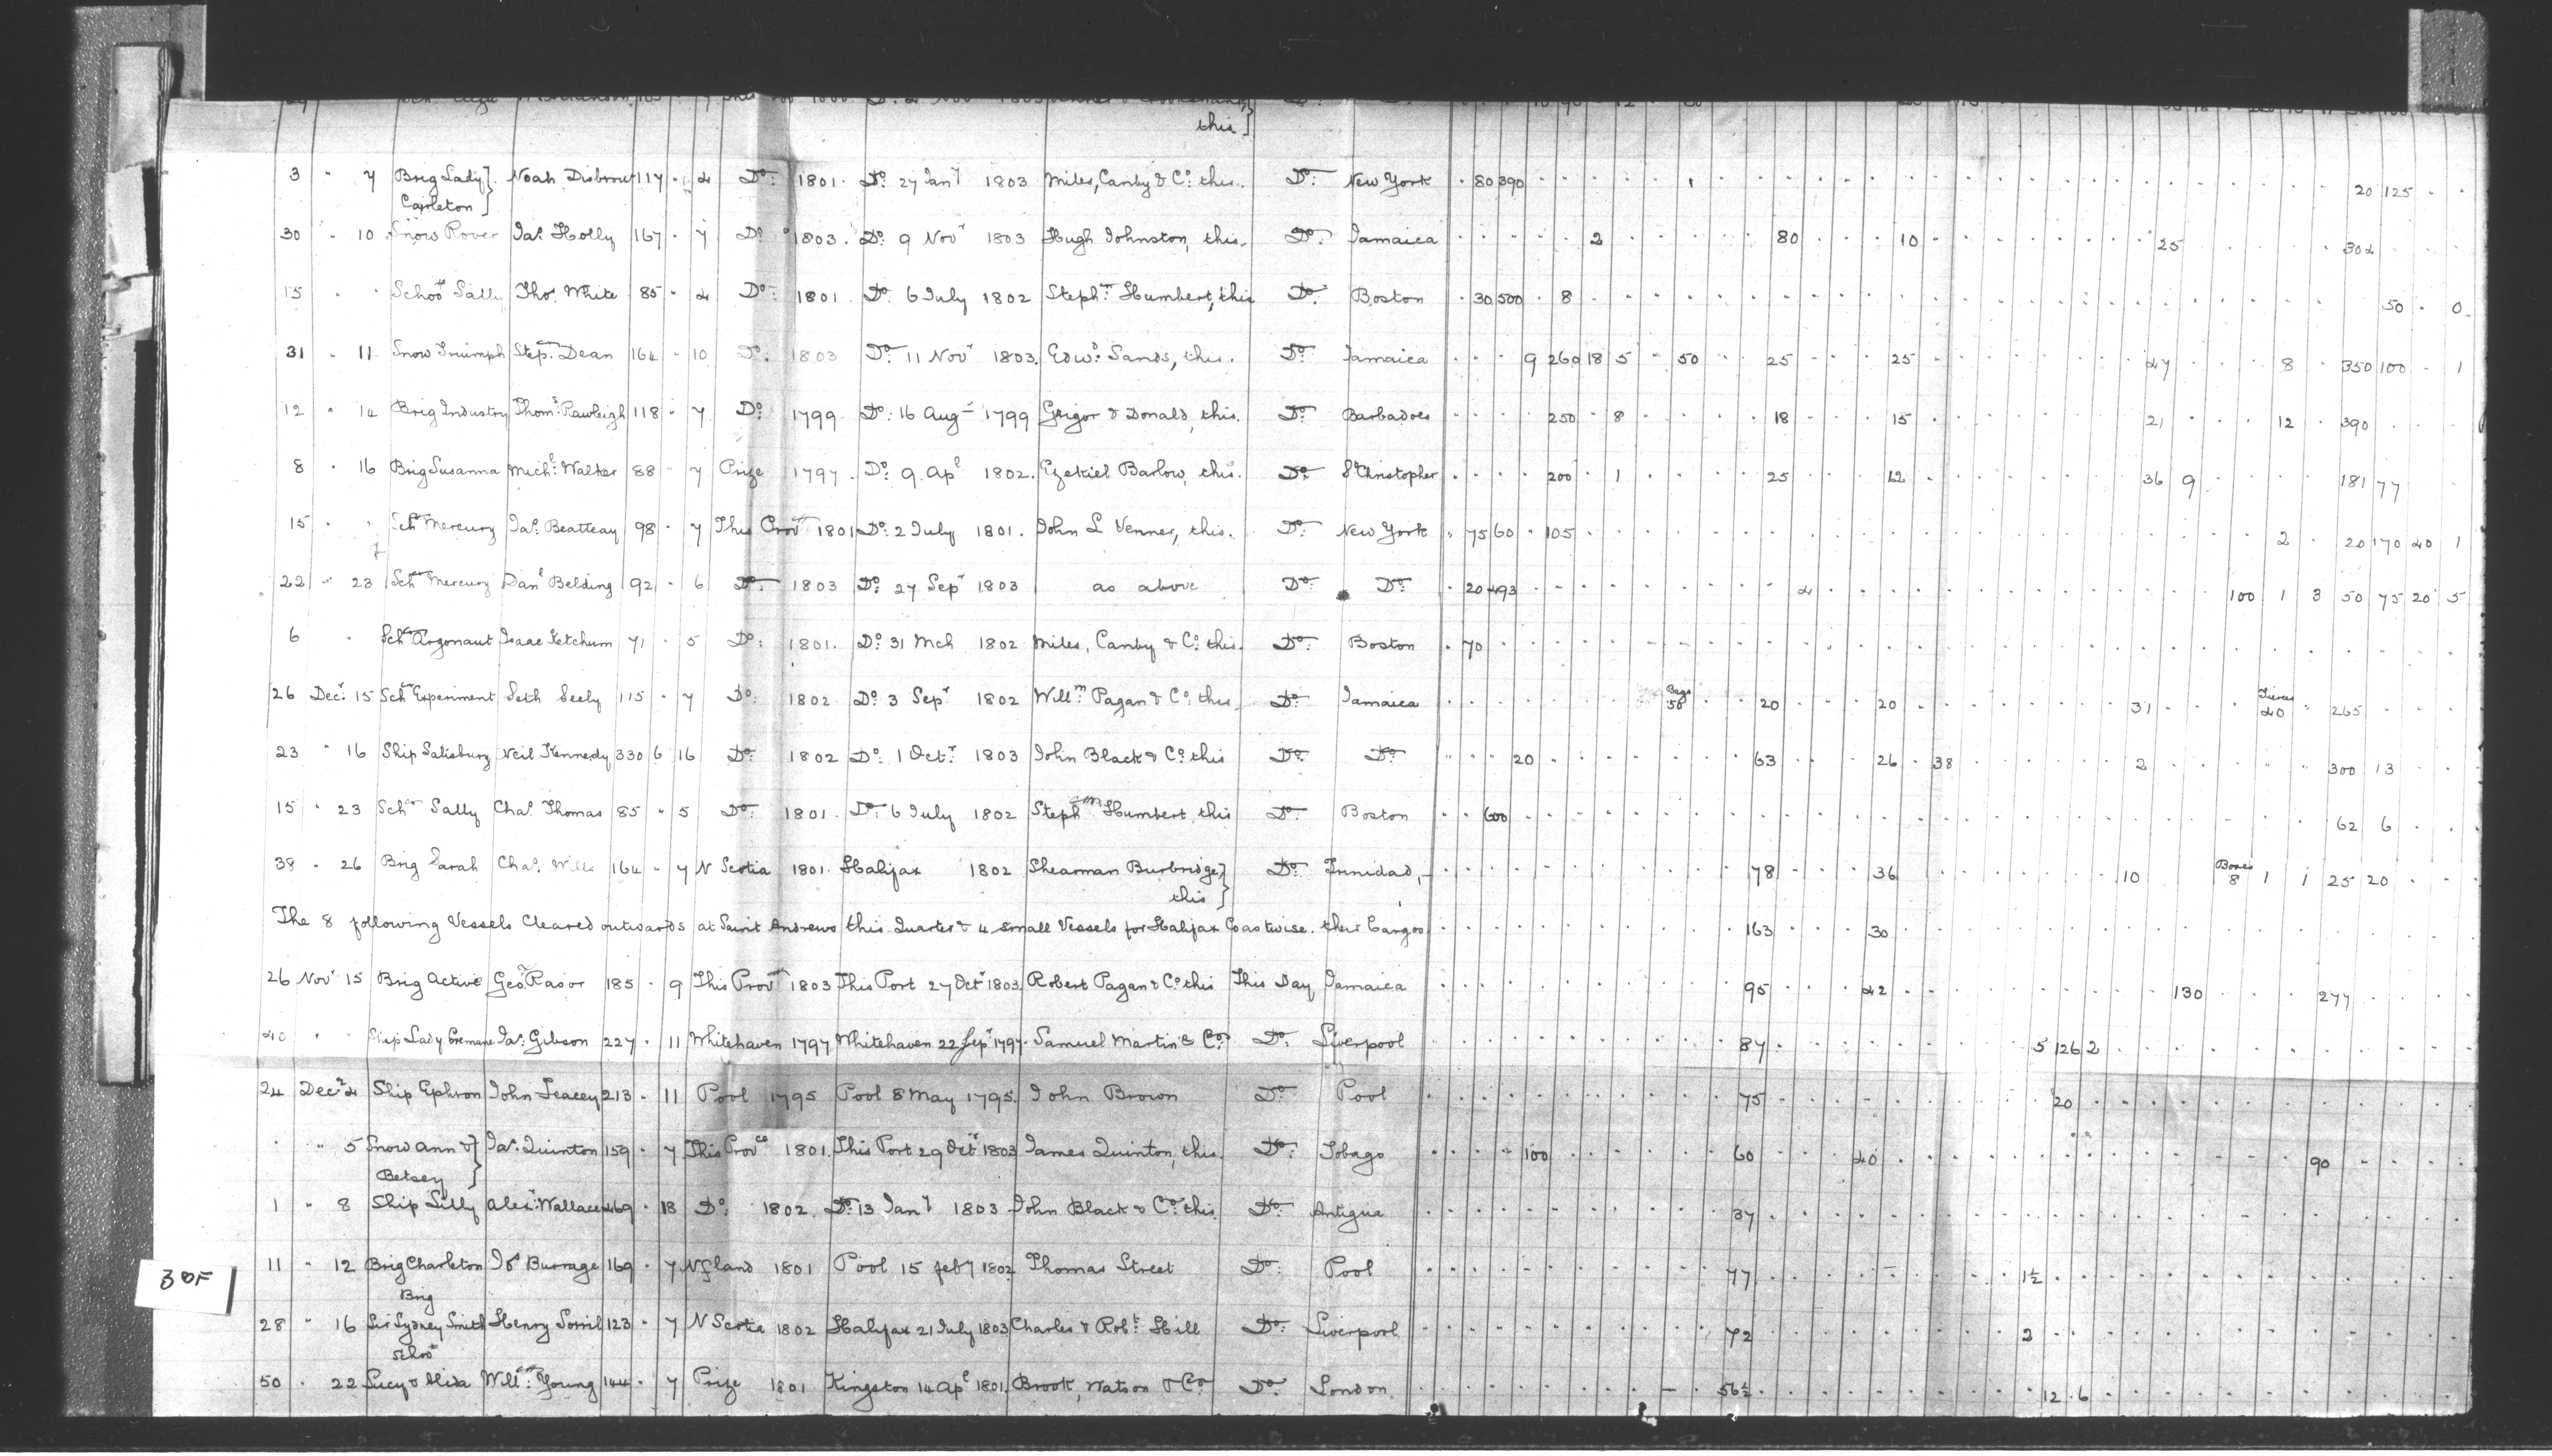 this}
3 " 7 Brig Lady} Noah Disbrow 117 - 4 Do: 1801. Do: 27 Jany 1803 Miles, Canby & Co: this. Do: New York . 80 390 20 125
Carleton}
30 " 10 Snow Rover Jas. Holly 167 - 7 Do: 1803. Do: 9 Novr 1803 Hugh Johnston, this. Do: Jamaica 2 80 10 25 304
15 " " Schoor Sally Thos. White 85 - 4 Do: 1801. Do: 6 July 1802 Stephn Humbert, this Do: Boston . 30 500 . 8 50 . 0
31 " 11 Snow Triumph Stepn. Dean 164 - 10 Do: 1803 Do: 11 Novr 1803. Edwd: Sands, this. Do: Jamaica 9 260 18 5 50 25 25 47 8 350 100 1
12 " 14 Brig Industry Thoms: Rawleigh 118 - 7 Do: 1799. Do: 16 Augt 1799 Grigor & Donald, this. Do: Barbadoes 250 . 8 18 15 21 12 390
8 " 16 Brig Susanna Michl: Walker 88 - 7 Prize 1797. Do: 9. Apl 1802. Ezekiel Barlow, this. Do: St Christopher 200 . 1 25 12 36 9 181 77
15 " " Schr Mercury Jas. Beatteay 98 - 7 This Provce 1801 Do: 2 July 1801. John L Venner, this. Do: New York " 75 60 . 105 2 . 20 170 40 1
22 " 23 Schr Mercury Danl Belding 92 - 6 Do: 1803 Do: 27 Sepr 1803 as above Do: Do: . 20 493 4 100 1 3 50 75 20 5
6 " Schr Argonaut Isaac Ketchum 71 - 5 Do: 1801. Do: 31 Mch 1802 Miles, Canby & Co: this. Do: Boston . 70
26 Decr. 15 Schr Experiment Seth Seely 115 - 7 Do: 1802 Do: 3 Sepr 1802 Willm Pagan & Co: this. Do: Jamaica Bags 50 20 20 31 Tierces 40 " 265
23 " 16 Ship Salisbury Neil Kennedy 330 6 16 Do: 1802 Do: 1 Octr 1803 John Black & Co: this Do: Do: 20 63 26 . 38 2 300 13
15 " 23 Schr Sally Chas. Thomas 85 - 5 Do: 1801. Do: 6 July 1802 Stephn Humbert, this Do: Boston 600 62 6
38 " 26 Brig Sarah Chas. Wills 164 - 7 N Scotia 1801. Halifax 1802 Shearman Burbridge,} Do: Trinidad, 78 36 10 Boxes 8 1 1 25 20
this}
The 8 following Vessels Cleared outwards at Saint Andrews this Quarter & 4 small Vessels for Halifax Coastwise. their Cargos 163 30
26 Novr 15 Brig Active Geo. Rasor 185 - 9 This Provce 1803 This Port 27 Octr 1803 Robert Pagan & Co: this This Day Jamaica 95 42 130 277
40 " " Ship Lady Jas: Gibson 227 - 11 Whitehaven 1797 Whitehaven 22 Sepr 1797. Samuel Martin & Co. Do: Liverpool 87 5 126 2
24 Decr 4 Ship Ephron John Leacey 213 - 11 Pool 1795 Pool 8 May 1795. John Brown Do: Pool 75 20
" 5 Snow Ann &} Jas. Quinton 159 - 7 This Provce 1801. This Port 29 Octr 1803 James Quinton, this. Do: Tobago 100 60 40 90
Betsey}
1 " 8 Ship Lilly Alexr. Wallace 469 - 18 Do: 1802. Do: 13 Jany 1803 John Black & Co: this. Do: Antigua 37
11 " 12 Brig Charleton Jos Burrage 169 - 7 Nfland 1801 Pool 15 feby 1802 Thomas Street Do: Pool 77 1½
30F
Brig
28 " 16 Sir Sydney Smith Henry Sorril 123 - 7 N Scotia 1802 Halifax 21 July 1803 Charles & Robt. Hill Do: Liverpool 72 2
Schoor
50 . 22 Lucy & Alida Willm. Young 144 - 7 Prize 1801 Kingston 14 Apl 1801. Brook, Watson & Co Do: London 56½ 12 . 6